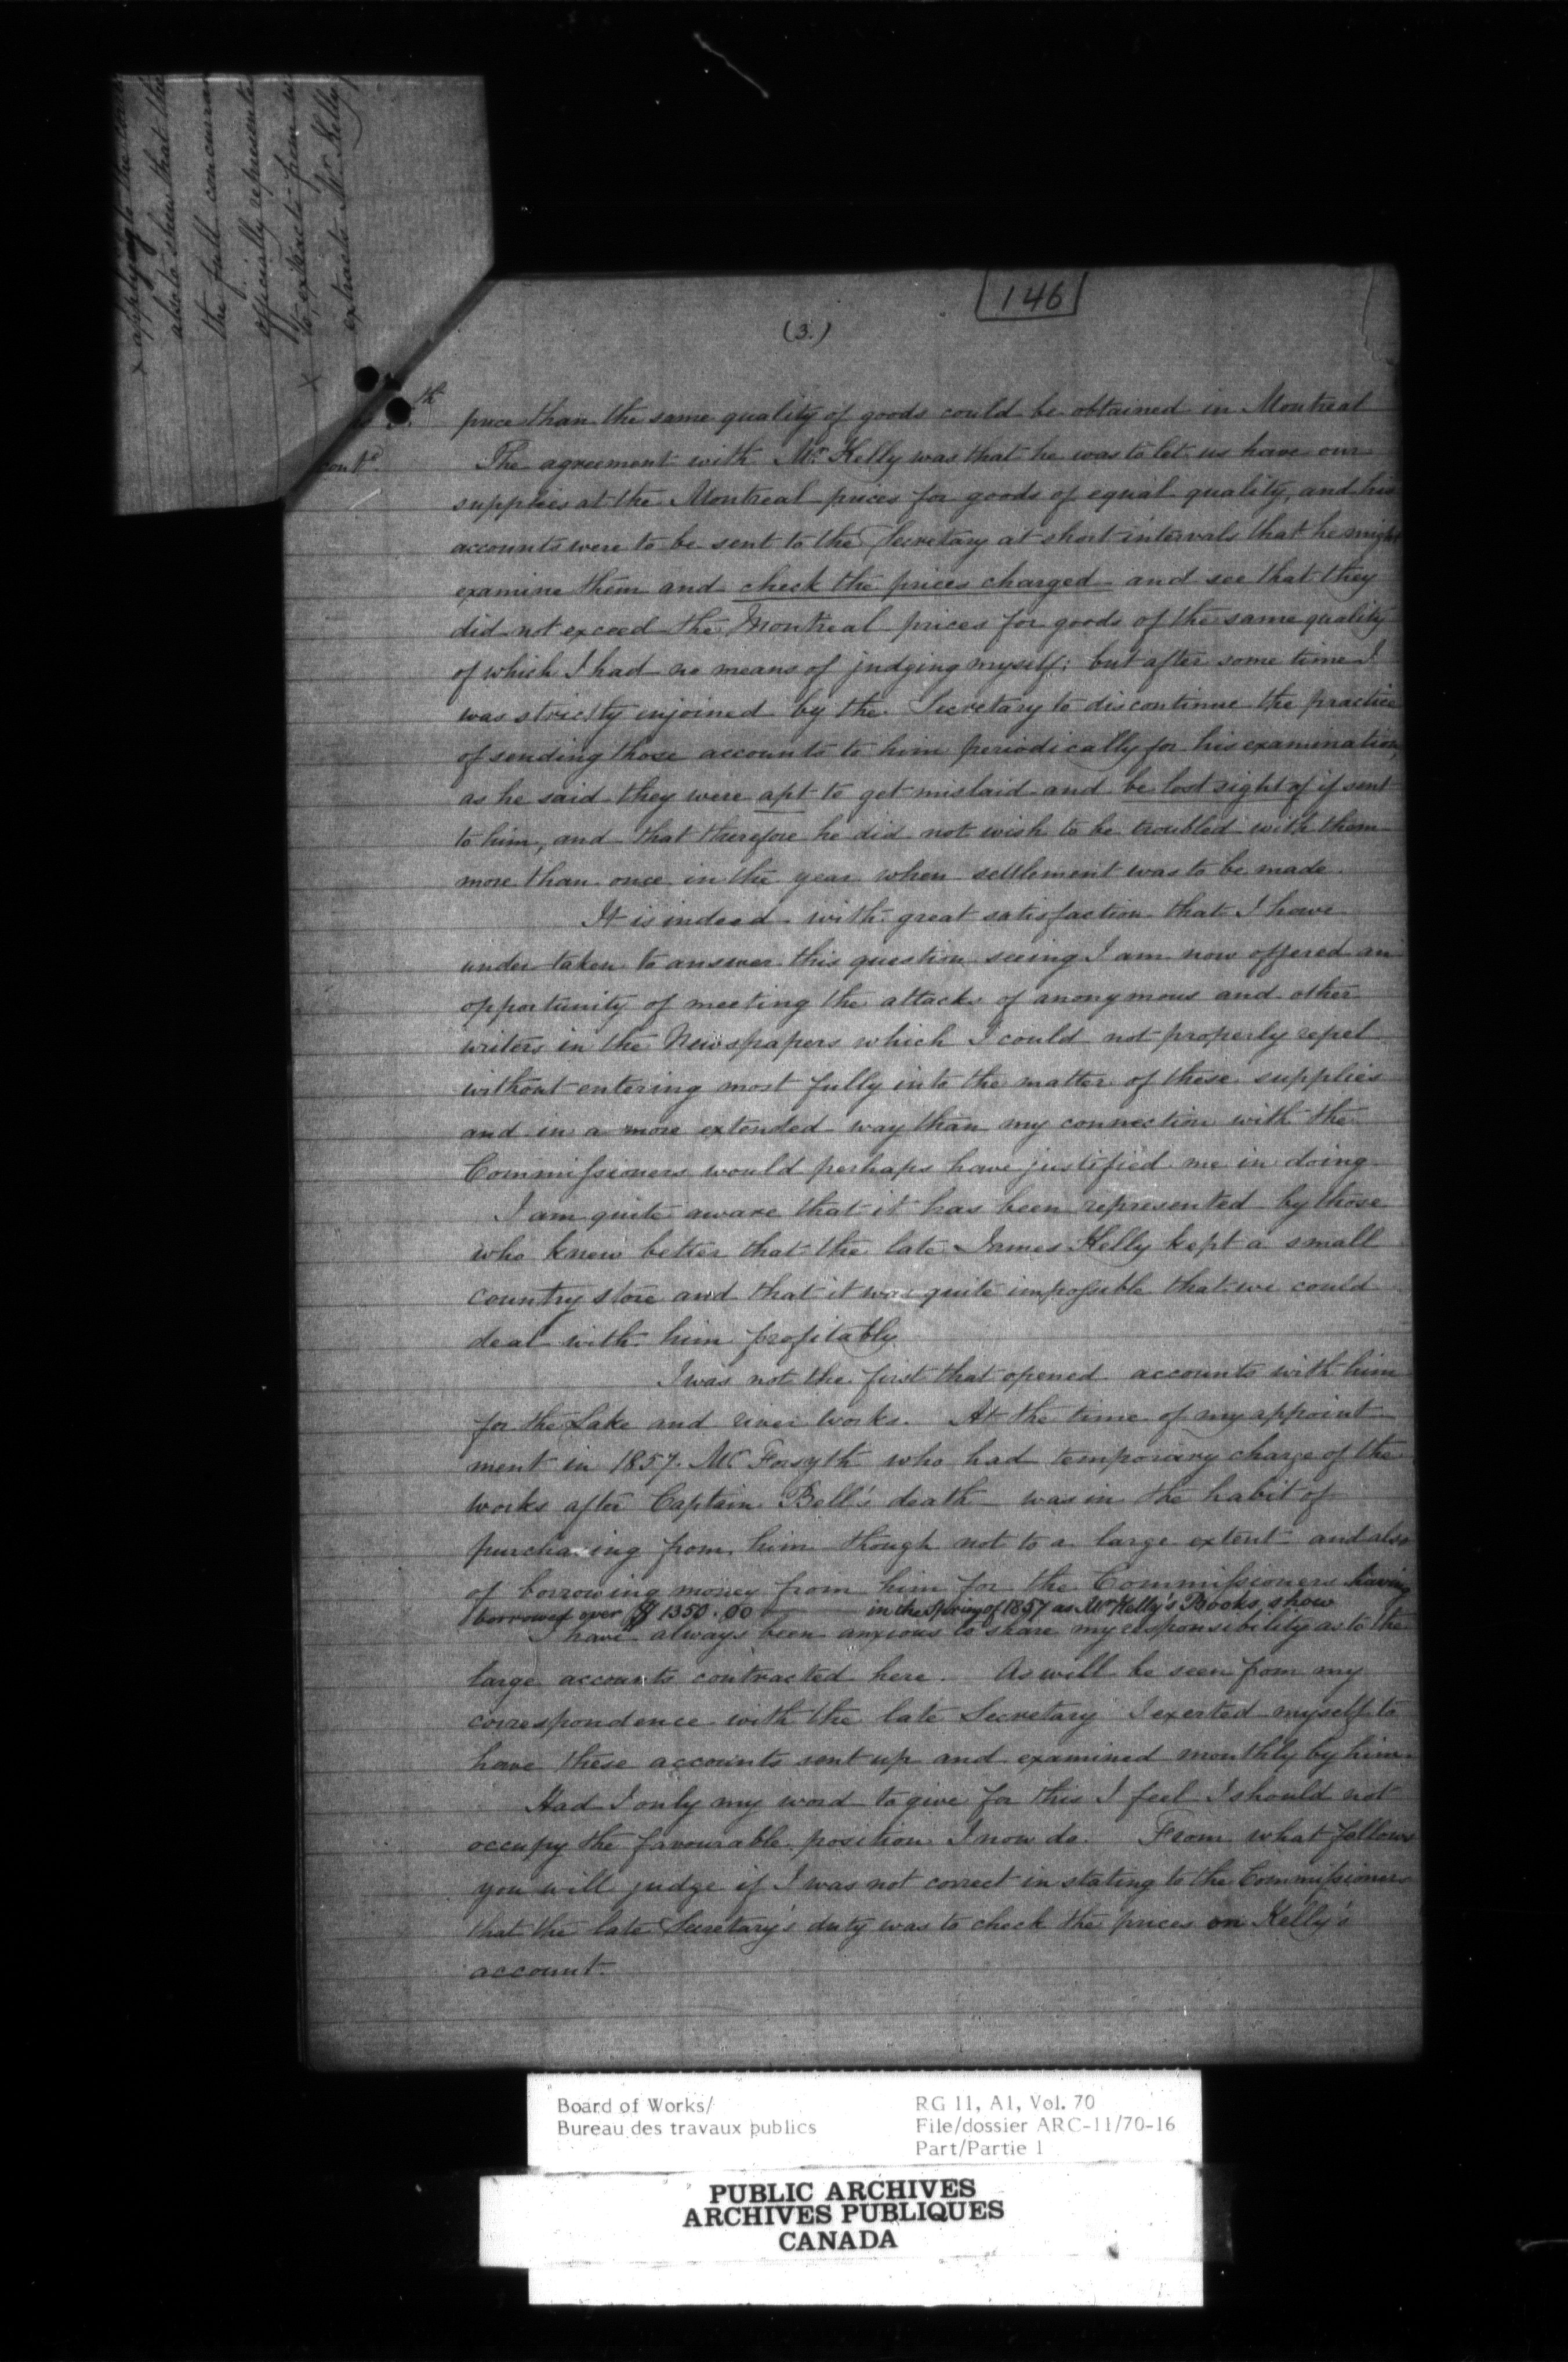 x applying to the
also to shew that the
the full concurra
officially represente
to, extracts from
x extracts Mr. Kelly
146
(3.)
th
cont.d
price than the same quality of goods could be obtained in Montreal
The agreement with Mr. Kelly was that he was to let us have our
supplies at the Montreal prices for goods of equal quality, and his
accounts were to be sent to the Secretary at short intervals that he might
examine them and check the prices charged and see that they
did not exceed the Montreal prices for goods of the same quality
of which I had no means of judging myself; but after some time I
was strictly enjoined by the Secretary to discontinue the practice
of sending those accounts to him periodically for his examination,
as he said they were apt to get mislaid and be lost sight of if sent
to him, and that therefore he did not wish to be troubled with them
more than once in the year when settlement was to be made.
It is indeed with great satisfaction that I have
under taken to answer this question seeing I am now offered an
opportunity of meeting the attacks of anonymous and other
writers in the Newspapers which I could not properly repel
without entering most fully into the matter of these supplies
and in a more extended way than my connection with the
Commissioners would perhaps have justified me in doing
I am quite aware that it has been represented by those
who knew better that the late James Kelly kept a small
country store and that it was quite impossible that we could
deal with him profitably.
I was not the first that opened accounts with him
for the Lake and river works. At the time of my appoint
ment in 1857. Mr Forsyth who had temporary charge of the
works after Captain Bell's death was in the habit of
purchasing from him though not to a large extent and also
of borrowing money from him for the Commissioners having
borrowed over $1350.00 in the Spring of 1857 as Mr Kelly's Books show
I have always been anxious to share my responsibility as to the
large accounts contracted here. As will be seen from my
correspondence with the late Secretary I exerted myself to
have these accounts sent up and examined monthly by him.
Had I only my word to give for this I feel I should not
occupy the favourable position I now do. From what follows
you will judge if I was not correct in stating to the Commissioners
that the late Secretary's duty was to check the prices on Kelly's
account.
Board of Works/
Bureau des travaux publics
RG 11, A1, Vol. 70
File/dossier ARC-11/70-16
Part/Partie 1
PUBLIC ARCHIVES
ARCHIVES PUBLIQUES
CANADA